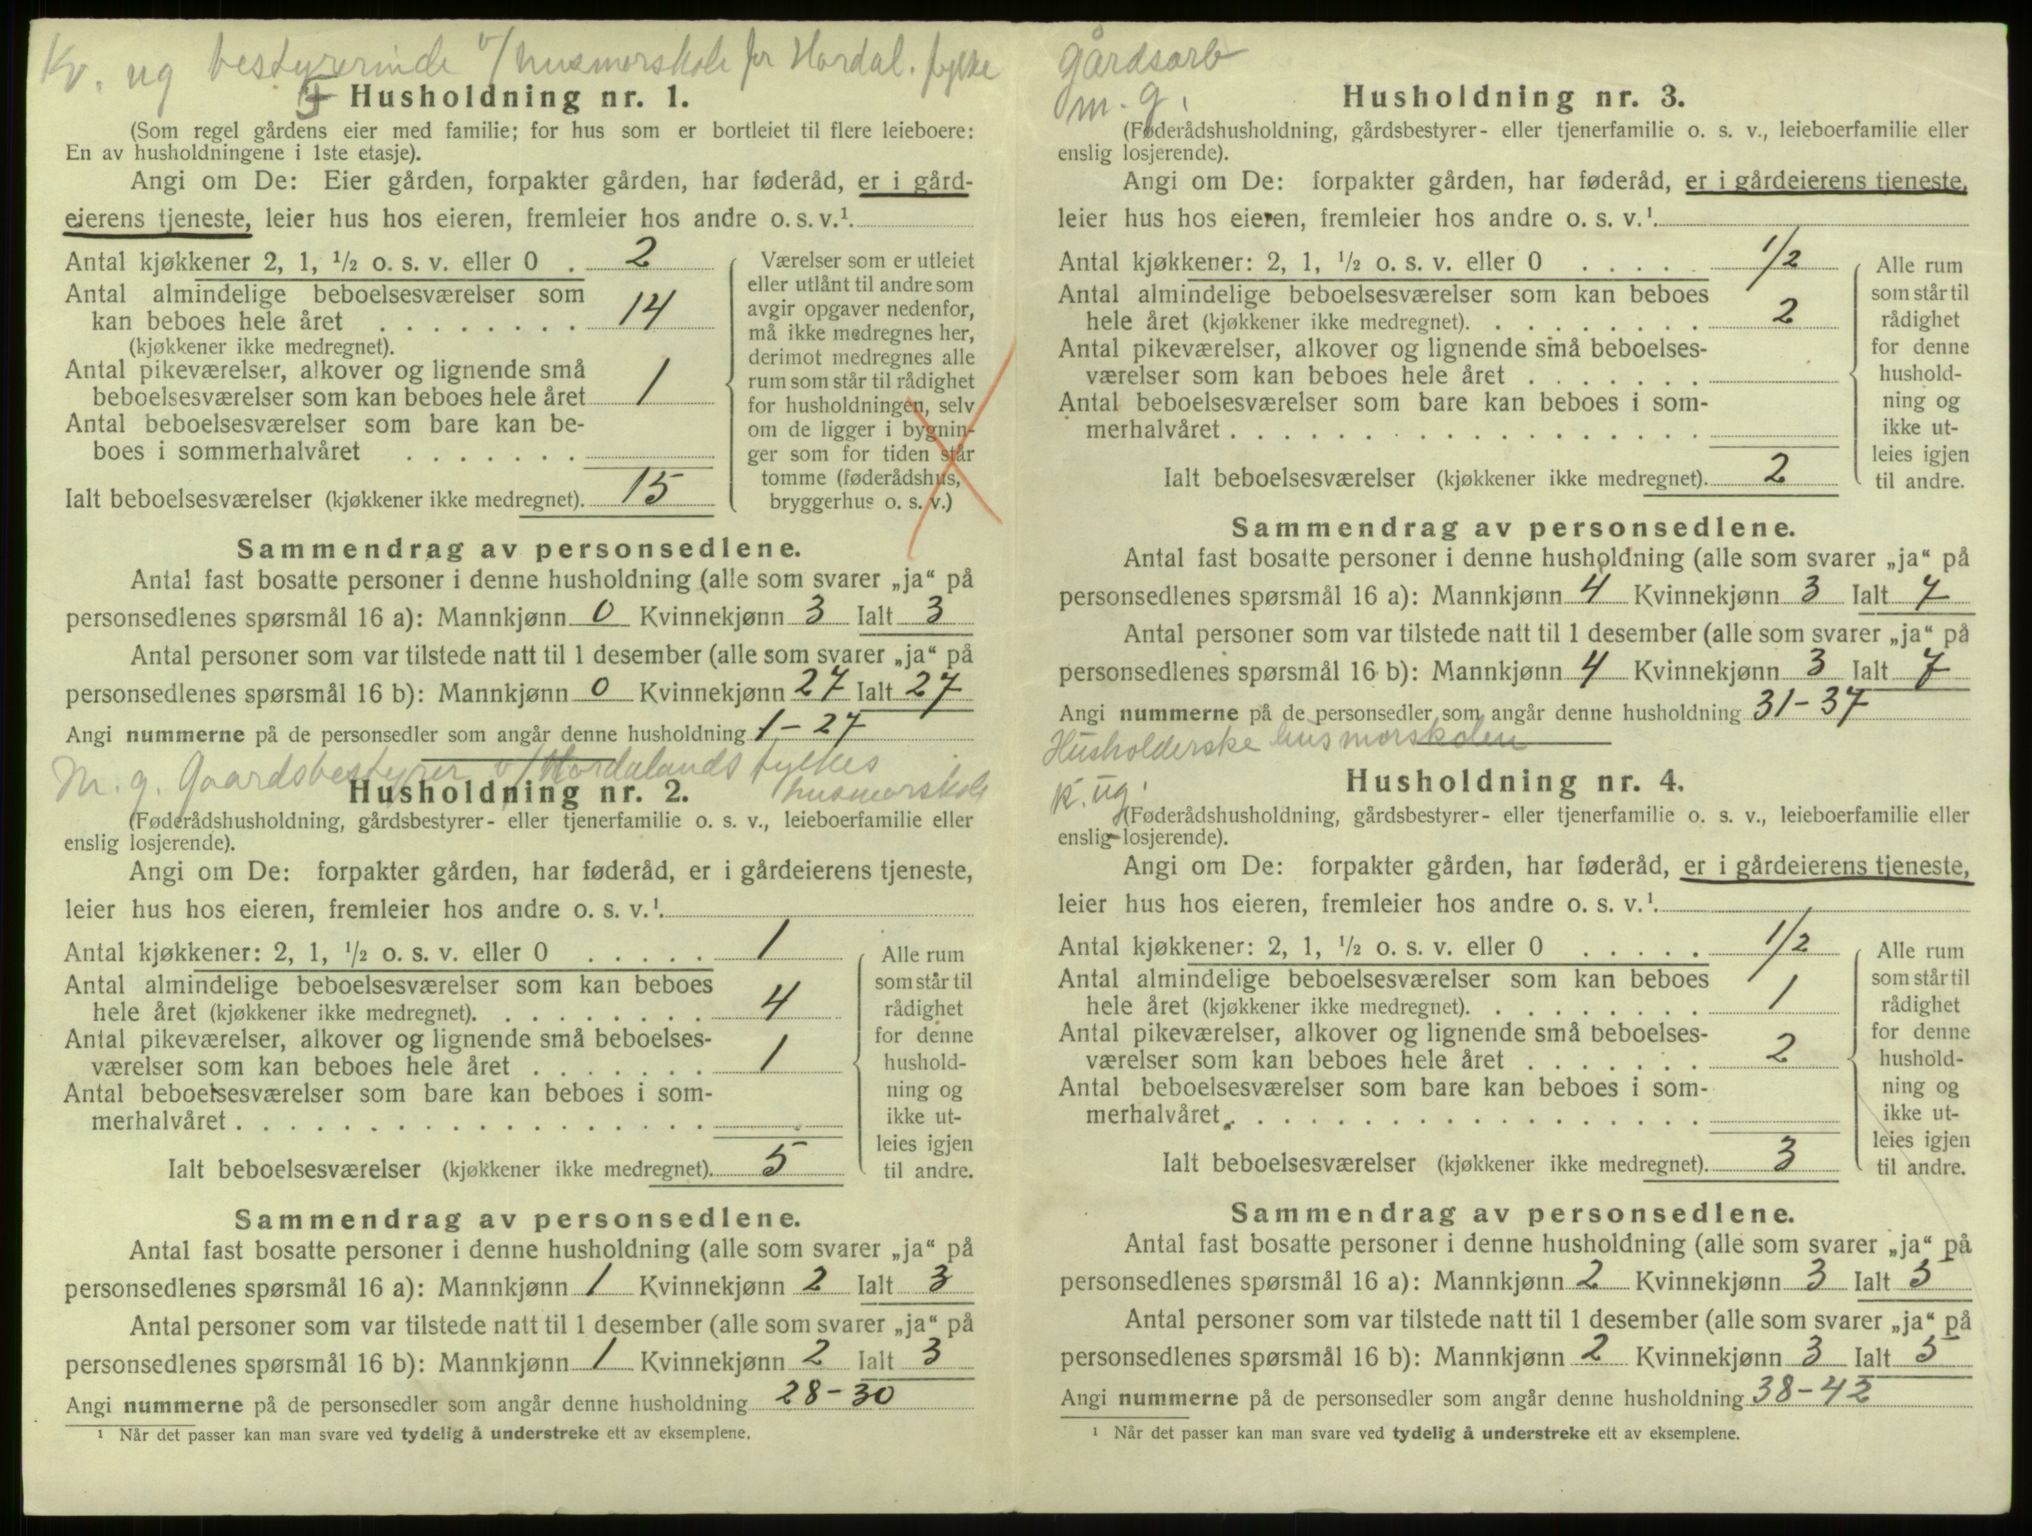 Kv. ug bestyrerinde v/ husmorskole for Hordal. fylke
Husholdning nr. 1.
(Som regel gårdens eier med familie; for hus som er bortleiet til flere leieboere:
En av husholdningene i 1ste etasje).
Angi om De: Eier gården, forpakter gården, har føderåd, er i gård-
eierens tjeneste, leier hus hos eieren, fremleier hos andre o. s. v.¹
Antal kjøkkener 2, 1, ½ o. s. v. eller 0 . 2
Antal almindelige beboelsesværelser som
kan beboes hele året . . . . . . . . 14
(kjøkkener ikke medregnet).
Antal pikeværelser, alkover og lignende små
beboelsesværelser som kan beboes hele året 1
Antal beboelsesværelser som bare kan be-
boes i sommerhalvåret . . . . . . .
Ialt beboelsesværelser (kjøkkener ikke medregnet). 15
Værelser som er utleiet
eller utlånt til andre som
avgir opgaver nedenfor,
må ikke medregnes her,
derimot medregnes alle
rum som står til rådighet
for husholdningen, selv
om de ligger i bygnin-
ger som for tiden står
tomme (føderådshus,
bryggerhus o. s. v.)
Sammendrag av personsedlene.
Antal fast bosatte personer i denne husholdning (alle som svarer „ja“ på
personsedlenes spørsmål 16 a): Mannkjønn 0 Kvinnekjønn 3 Ialt 3
Antal personer som var tilstede natt til 1 desember (alle som svarer „ja“ på
personsedlenes spørsmål 16 b): Mannkjønn 0 Kvinnekjønn 27 Ialt 27
Angi nummerne på de personsedler som angår denne husholdning 1-27
M. g. Gaardsbestyrer v/ Hordalands fylkes
husmorskole
Husholdning nr. 2.
(Føderådshusholdning, gårdsbestyrer- eller tjenerfamilie o. s. v., leieboerfamilie eller
enslig losjerende).
Angi om De: forpakter gården, har føderåd, er i gårdeierens tjeneste,
leier hus hos eieren, fremleier hos andre o. s. v.¹
Antal kjøkkener: 2, 1, ½ o. s. v. eller 0 . . . . . 1
Antal almindelige beboelsesværelser som kan beboes
hele året (kjøkkener ikke medregnet). . . . . . . . . 4
Antal pikeværelser, alkover og lignende små beboelses-
værelser som kan beboes hele året . . . . . . . 1
Antal beboelsesværelser som bare kan beboes i som-
merhalvåret . . . . . . . . . . . . . . . . . .
Ialt beboelsesværelser (kjøkkener ikke medregnet). 5
Alle rum
som står til
rådighet
for denne
hushold-
ning og
ikke ut-
leies igjen
til andre.
Sammendrag av personsedlene.
Antal fast bosatte personer i denne husholdning (alle som svarer „ja“ på
personsedlenes spørsmål 16 a): Mannkjønn 1 Kvinnekjønn 2 Ialt 3
Antal personer som var tilstede natt til 1 desember (alle som svarer „ja“ på
personsedlenes spørsmål 16 b): Mannkjønn 1 Kvinnekjønn 2 Ialt 3
Angi nummerne på de personsedler som angår denne husholdning 28-30
¹ Når det passer kan man svare ved tydelig å understreke ett av eksemplene.
gårdsarb
m. g.
Husholdning nr. 3.
(Føderådshusholdning, gårdsbestyrer- eller tjenerfamilie o. s. v., leieboerfamilie eller
enslig losjerende).
Angi om De: forpakter gården, har føderåd, er i gårdeierens tjeneste,
leier hus hos eieren, fremleier hos andre o. s. v.¹
Antal kjøkkener: 2, 1, ½ o. s. v. eller 0 . . . . 1/2
Antal almindelige beboelsesværelser som kan beboes
hele året (kjøkkener ikke medregnet). . . . . . . . . 2
Antal pikeværelser, alkover og lignende små beboelses-
værelser som kan beboes hele året . . . . . . .
Antal beboelsesværelser som bare kan beboes i som-
merhalvåret . . . . . . . . . . . . . . . . . .
Ialt beboelsesværelser (kjøkkener ikke medregnet). 2
Alle rum
som står til
rådighet
for denne
hushold-
ning og
ikke ut-
leies igjen
til andre.
Sammendrag av personsedlene.
Antal fast bosatte personer i denne husholdning (alle som svarer „ja“ på
personsedlenes spørsmål 16 a): Mannkjønn 4 Kvinnekjønn 3 Ialt 7
Antal personer som var tilstede natt til 1 desember (alle som svarer „ja“ på
personsedlenes spørsmål 16 b): Mannkjønn 4 Kvinnekjønn 3 Ialt 7
Angi nummerne på de personsedler som angår denne husholdning 31-37
Husholderske husmorskolen
k. ug.
Husholdning nr. 4.
(Føderådshusholdning, gårdsbestyrer- eller tjenerfamilie o. s. v., leieboerfamilie eller
enslig losjerende).
Angi om De: forpakter gården, har føderåd, er i gårdeierens tjeneste,
leier hus hos eieren, fremleier hos andre o. s. v.¹
Antal kjøkkener: 2, 1, ½ o. s. v. eller 0 . . . . . 1/2
Antal almindelige beboelsesværelser som kan beboes
hele året (kjøkkener ikke medregnet). . . . . . . . . 1
Antal pikeværelser, alkover og lignende små beboelses-
værelser som kan beboes hele året . . . . . . . 2
Antal beboelsesværelser som bare kan beboes i som-
merhalvåret . . . . . . . . . . . . . . . . . .
Ialt beboelsesværelser (kjøkkener ikke medregnet). 3
Alle rum
som står til
rådighet
for denne
hushold-
ning og
ikke ut-
leies igjen
til andre.
Sammendrag av personsedlene.
Antal fast bosatte personer i denne husholdning (alle som svarer „ja“ på
personsedlenes spørsmål 16 a): Mannkjønn 2 Kvinnekjønn 3 Ialt 5
Antal personer som var tilstede natt til 1 desember (alle som svarer „ja“ på
personsedlenes spørsmål 16 b): Mannkjønn 2 Kvinnekjønn 3 Ialt 5
Angi nummerne på de personsedler som angår denne husholdning 38-42
¹ Når det passer kan man svare ved tydelig å understreke ett av eksemplene.